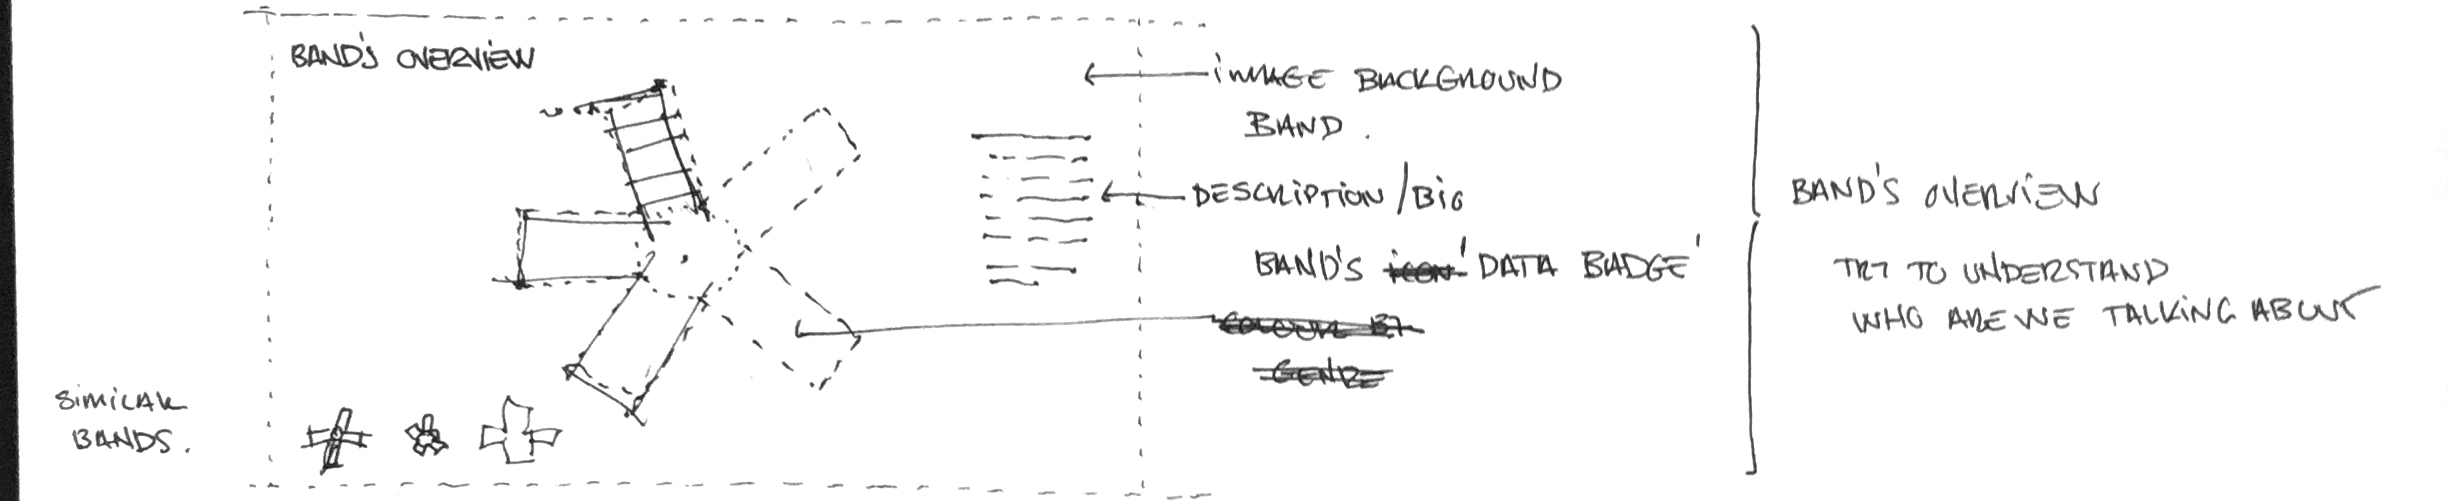 BAND'S OVERVIEW
IMAGE BACKGROUND
BAND.
DESCRIPTION/BIO
BAND'S icon 'DATA BADGE'
COLOUR BY
GENRE
SIMILAR
BANDS.
BAND'S OVERVIEW
TRY TO UNDERSTAND
WHO ARE WE TALKING ABOUT